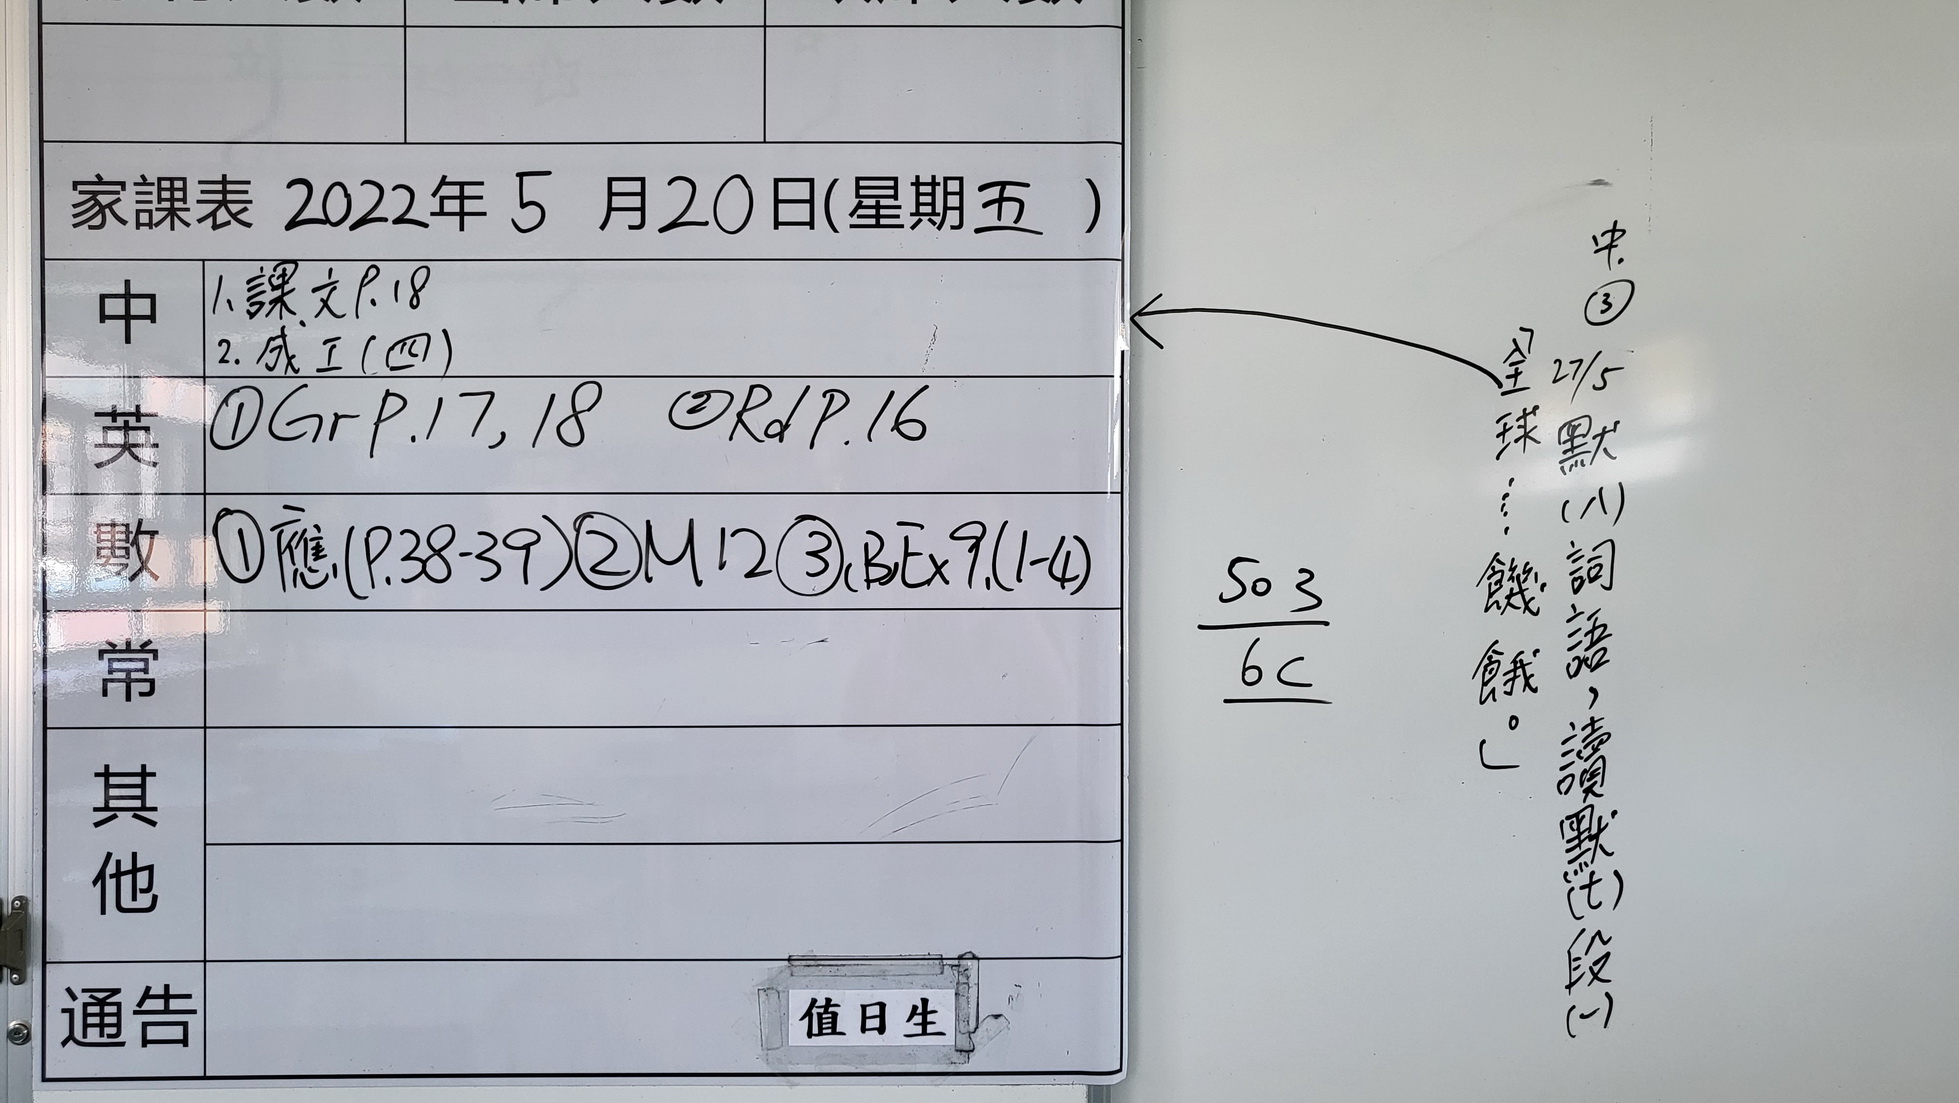 家課表 2022年 5 月20日(星期五 )
中
1. 課文P.18
2. 成工(四)
英
①Gr P.17, 18 ②Rd P.16
數
①應(P.38-39)②M12③(B)Ex9.(1-4)
常
其他
通告
值日生
503
6C
中.
③
27/5 默(八)詞語,讀默(七)段(一)
「全球……饑餓。」